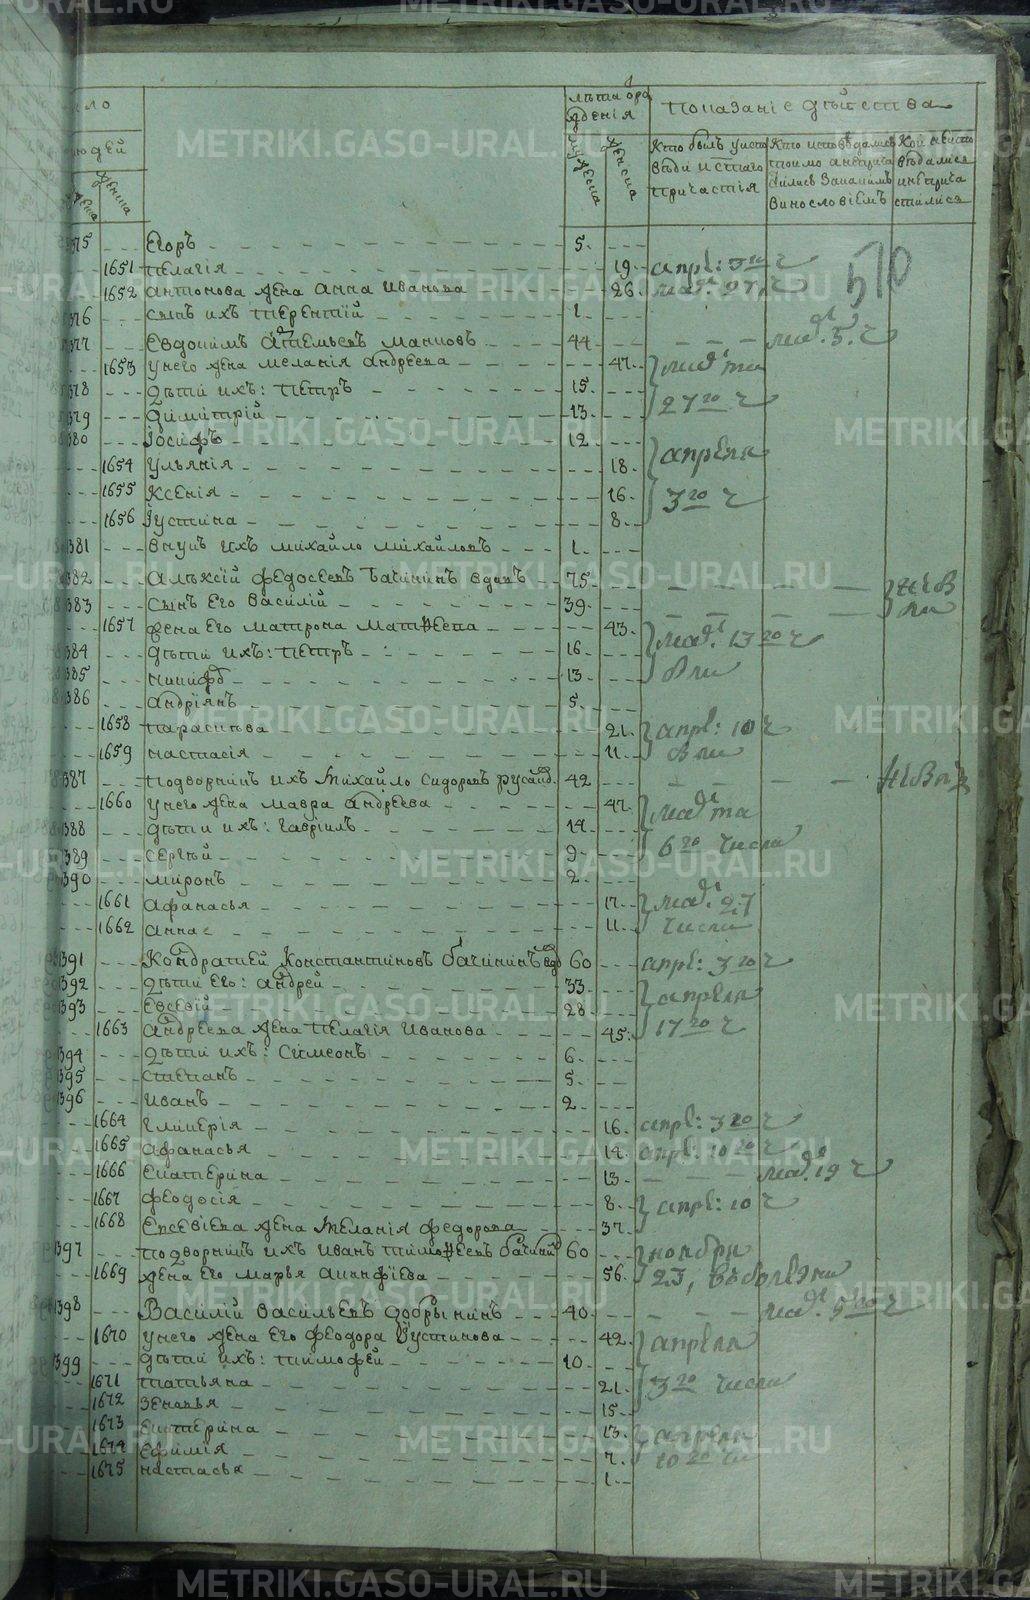 ло
людей
жениска
лѣта ѿро
жденія
мужеска
женска
Показаніе дѣйства
Кто былъ у испо
вѣди и с̃таго
причастія
Кто исповѣдались
токмо а не прича
стились
винословіемъ
Кои не испо
вѣдались
и не прича
стились
510
375 Егоръ 5.
1651 Пелагія 19. апрѣ: 3го ч
1652 Антонова жена Анна Иванова 26. маі 27. ч
376 сынъ ихъ Терентій 1.
377 Евдокимъ Савельевъ Манковъ 44 маі 5. ч
1653 у него жена Меланія Андреева 47. маі та
378 дѣти ихъ: Петръ 15. 27го ч
379 Димитрій 13.
380 Іосифъ 12. апрѣля
1654 Ульянія 18.
1655 Ксенія 16. 3го ч
1656 Іустина 8.
381 внукъ ихъ Михайло Михайловъ 1.
382 Алѣксій Федосеевъ Бачининъ вдовъ 75
383 сынъ его Василій 39.
1657 жена его Матрона Матвеева 43. маі 13го ч
384 дѣти ихъ: Петръ 16.
385 Никифоръ 13.
386 Андріянъ 5.
1658 Парасковва 21. апрѣ: 10 ч
1659 Настасія 11.
387 Подворникъ ихъ Михайло Сидоровъ 42
1660 у него жена Мавра Андреева 47. маі та
388 дѣти ихъ: Гавріилъ 14. 6го числа
389 Сергѣй 9.
390 Миронъ 2.
1661 Афанасья 17. маі 27
1662 Анна 11. числа
391 Кондратей Константиновъ Бачининъ вдов 60 апрѣ: 3го ч
392 дѣти его: Андрей 33. апрѣля
393 Евсевій 28 17го ч
1663 Андреева жена Пелагія Иванова 45.
394 дѣти ихъ: Симеонъ 6.
395 Степанъ 5.
396 Иванъ 2.
1664 Гликерія 16. апрѣ: 3го ч
1665 Афанасья 14. апрѣ: 10го ч
1666 Екатерина 13. маі 19 ч
1667 Феодосія 8. апрѣ: 10 ч
1668 Евсевіева жена Меланія Федорова 37.
397 Подворникъ ихъ Иванъ Тимофеевъ Бачинин 60 ноября
1669 жена его Марья Акинфіева 56. 23, въ болѣзни
398 Василій Васильевъ Добрынинъ 40. маі 5го ч
1670 у него жена его Феодора Іустинова 42. апрѣля
399 дѣти ихъ: Тимофей 10.
1671 Татьяна 21. 3го числа
1672 Зеновья 15.
1673 Екатерина 13. апрѣля
1674 Ефимія 7. 10го чи
1675 Настасья 1.
METRIKI.GASO-URAL.RU